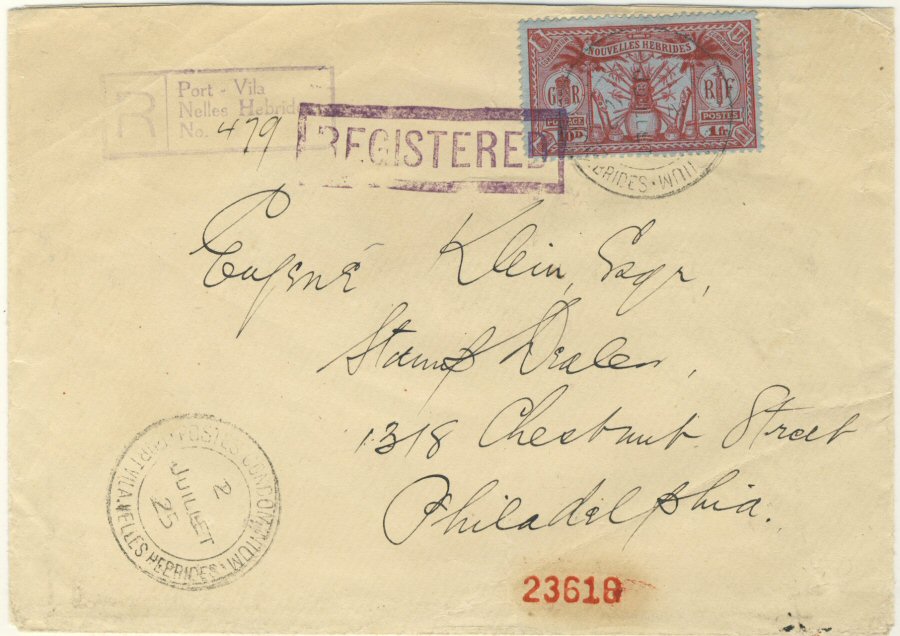 R
Port - Vila
Nelles Hebrid
No. 479
REGISTERED
NOUVELLES HEBRIDES
G R
R F
POSTAGE
POSTES
10D
1 fr.
EBRIDES · WNIUM
Eugene Klein, Esqr,
Stamp Dealer,
1318 Chestnut Street
Philadelphia.
POSTES CONDOMINIUM
2
JUILLET
25
PORT VILA. NELLES HEBRIDES.
23618